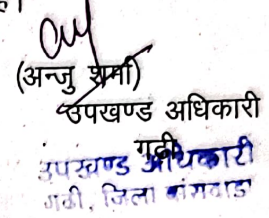 है।
(अन्जु शर्मा)
उपखण्ड अधिकारी
गढी
उपखण्ड अधिकारी
गढी, जिला बांसवाडा